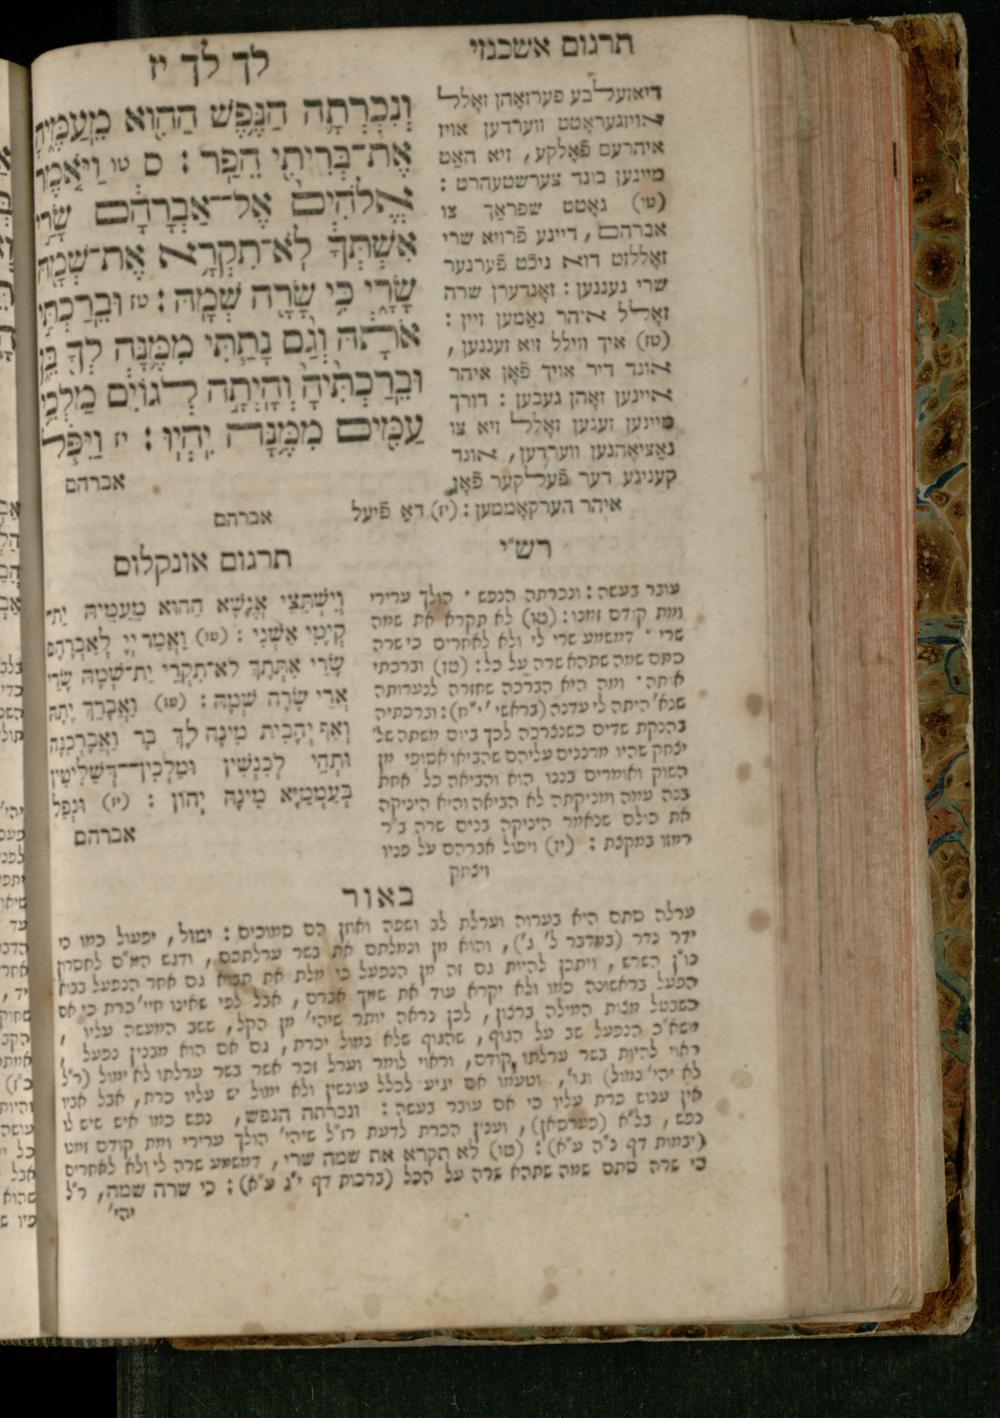 תרגום אשכנזי
לך לך יז
וְנִכְרְתָה הַנֶּפֶשׁ הַהִוא מֵעַמֶּיהָ
אֶת־בְּרִיתִי הֵפַר : ס טו וַיֹּאמֶר
אֱלֹהִים אֶל־אַבְרָהָם שָׂרַי
אִשְׁתְּךָ לֹא־תִקְרָא אֶת־שְׁמָהּ
שָׂרָי כִּי שָׂרָה שְׁמָהּ : טז וּבֵרַכְתִּי
אֹתָהּ וְגַם נָתַתִּי מִמֶּנָּה לְךָ בֵּן
וּבֵרַכְתִּיהָ וְהָיְתָה לְגוֹיִם מַלְכֵי
עַמִּים מִמֶּנָּה יִהְיוּ : יז וַיִּפֹּל
אברהם
דיאזעלבע פערזאָהן זאָלל
אויזגעראָטט ווערדען אויז
איהרעם פֿאָלקע , זיא האָט
מיינען בונד צערשטעהרט :
(טו) גאָטט שפראַך צו
אברהם , דיינע פֿרויא שרי
זאָללזט דוא ניכֿט פֿערנער
שרי נעננען : זאָנדערן שרה
זאָלל איהר נאָמען זיין :
(טז) איך ווילל זיא זעגנען ,
אונד דיר אויך פֿאָן איהר
איינען זאָהן געבען : דורך
מיינען זעגען זאָלל זיא צו
נאַציאָהנען ווערדען , אונד
קעניגע דער פֿעלקער פֿאָן
איהר הערקאָממען : (יז) דאָ פֿיעל
אברהם
רש״י
עובר בעשה : ונכרתה הנפש · הולך ערירי
ומת קודם זמנו : (טו) לא תקרא את שמה
שרי · דמשמע שרי לי ולא לאחרים כי שרה
סתם שמה שתהא שרה על כל : (טז) וברכתי
אותה · ומה היא הברכה שחזרה לנערותה
שנא׳ היתה לי עדנה (בראשי׳ י״ח) : וברכתיה
בהנקת שדים כשנצרכה לכך ביום משתה של
יצחק שהיו מרננים עליהם שהביאו אסופי מן
השוק ואומרים בננו הוא והביאה כל אחת
בנה עמה ומניקתה לא הביאה והיא היניקה
את כולם שנאמר היניקה בנים שרה ב״ר
רמזו במקצת : (יז) ויפול אברהם על פניו
ויצחק
תרגום אונקלוס
וְיִשְׁתֵּצֵי אֱנָשָׁא הַהוּא מֵעַמֵּיהּ יַת־
קְיָמִי אַשְׁנִי : (טו) וַאֲמַר יְיָ לְאַבְרָהָם
שָׂרַי אִתְּתָךְ לא־תִקְרֵי יַת־שְׁמָהּ שָׂרָי
אֲרֵי שָׂרָה שְׁמָהּ : (טז) וַאֲבָרֵךְ יָתַהּ
וְאַף יְהָבִית מִינַהּ לָךְ בָּר וַאֲבָרְכִנַּהּ
וּתְהֵי לְכִנְשִׁין וּמַלְכִין־דְּשַׁלִּיטִין
בְּעַמְמַיָּא מִינַהּ יְהוֹן : (יז) וּנְפַל
אברהם
באור
ערלה סתם היא בערוה וערלת לב ושפה ואוזן הם סמוכים : ימול , יפעול כמו כי
ידר נדר (במדבר ל׳ ג׳) , והוא מן ונמלתם את בשר ערלתכם , ודגש המ״ם לחסרון
נו״ן השרש , ויתכן להיות גם זה מן הנפעל כי מלת את תבוא גם אחר הנפעל בבוא
הפעל בראשונה כמו ולא יקרא עוד את שמך אברם , אבל לפי שאינו חייי כרת כי אם
כשבטל מצות המילה ברצון , לכן נראה יותר שיהי׳ מן הקל , ששב המעשה עליו ,
משא״כ הנפעל שב על הגוף , שהגוף שלא נמול יכרת , גם אם הוא מבנין נפעל ,
ראוי להיות בשר ערלתו קודם , וראוי לומר וערל זכר אשר בשר ערלתו לא ימול (ר״ל
לא יהי׳ נמול) וגו׳ , וטעמו אם יגיע לכלל עונשין ולא ימול יש עליו כרת , אבל אביו
אין ענוש כרת עליו כי אם עובר בעשה : ונכרתה הנפש , נפש כמו איש שיש לו
נפש , בל״א (פערסאן) , וענין הכרת לדעת רז״ל שיהי׳ הולך ערירי ומת קודם זמנו
(יבמות דף נ״ה ע״א) : (טו) לא תקרא את שמה שרי , דמשמע שרה לי ולא לאחרים
כי שרה סתם שמה שתהא שרה על הכל (ברכות דף י״ג ע״א) : כי שרה שמה , ר״ל
יהי׳